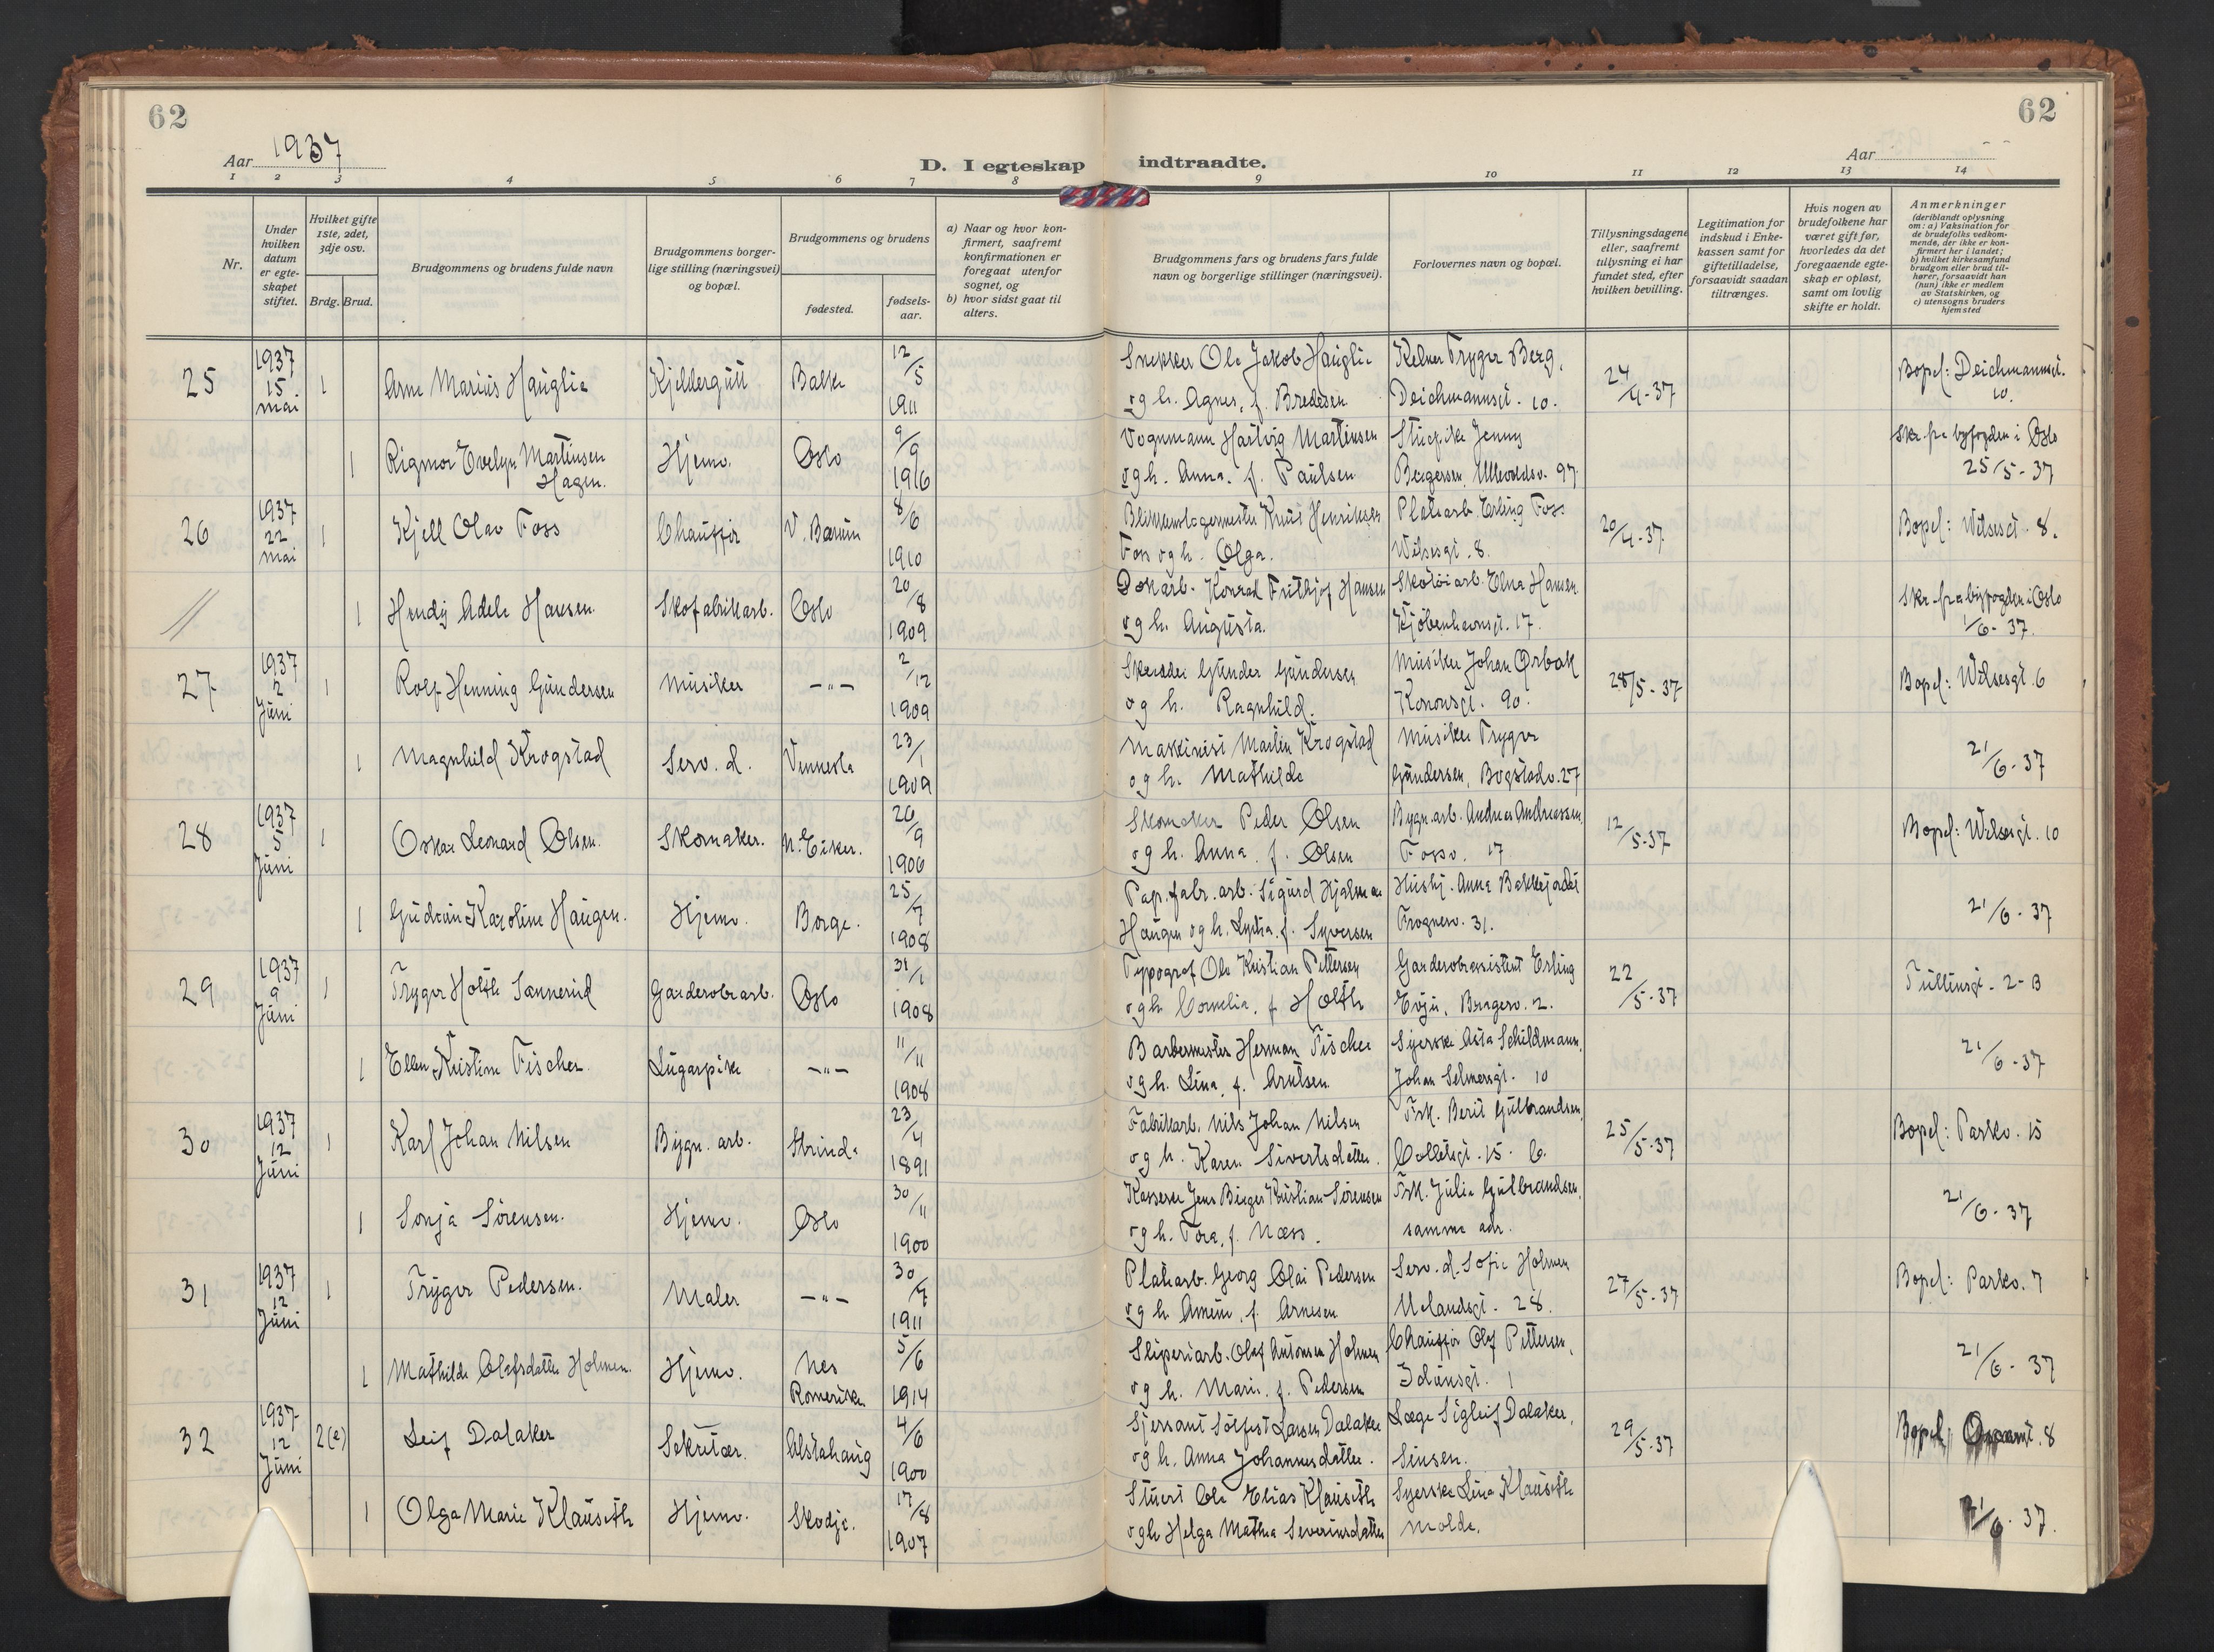 62
62
Aar 1937
D. I egteskap indtraadte.
Aar
1 2 3 4 5 6 7 8 9 10 11 12 13 14
Nr.
Under
hvilken
datum
er egte-
skapet
stiftet.
Hvilket gifte
1ste, 2det,
3dje osv.
Brdg. Brud.
Brudgommens og brudens fulde navn
Brudgommens borger-
lige stilling (næringsvei)
og bopæl.
Brudgommens og brudens
fødested.
fødsels-
aar.
a) Naar og hvor kon-
firmert, saafremt
konfirmationen er
foregaat utenfor
sognet, og
b) hvor sidst gaat til
alters.
Brudgommens fars og brudens fars fulde
navn og borgerlige stillinger (næringsvei).
Forlovernes navn og bopæl.
Tillysningsdagene
eller, saafremt
tillysning ei har
fundet sted, efter
hvilken bevilling.
Legitimation for
indskud i Enke-
kassen samt for
giftetilladelse,
forsaavidt saadan
tiltrænges.
Hvis nogen av
brudefolkene har
været gift før,
hvorledes da det
foregaaende egte-
skap er opløst,
samt om lovlig
skifte er holdt.
Anmerkninger
(deriblandt oplysning
om: a) Vaksination for
de brudefolks vedkom-
mende, der ikke er kon-
firmert her i landet;
b) hvilket kirkesamfund
brudgom eller brud til-
hører, forsaavidt han
(hun) ikke er medlem
av Statskirken, og
c) utensogns bruders
hjemsted
25 1937 15. mai 1 Arne Marius Hauglie Kjeldergutt Balke 12/5 1911
Snekker Ole Jakob Hauglie og h. Agnes, f. Bredesen Kelner Trygve Berg, Deichmannsgt. 10. 24/4-37 Bopel: Deichmannsgt. 10.
1 Rigmor Evelyn Martinsen Hagen. Hjemv. Oslo 9/9 1916
Vognmann Hartvig Martinsen og h. Anna. f. Paulsen Stuepike Jenny Bergersen, Ullevoldsv. 97 Skr. fra byfogden i Oslo 25/5-37
26 1937 22 mai 1 Kjell Olav Foss Chauffør V. Bærum 8/6 1910
Blikkenslagermester Knut Henriksen Foss og h. Olga. Platearb. Erling Foss Wilsesgt. 8. 20/4-37 Bopel: Wilsesgt. 8.
1 Hendy Adele Hansen. Skofabrikkarb. Oslo 20/8 1909
Dokarb. Konrad Frithjof Hansen og h. Augusta. Skotøiarb. Elna Hansen Kjøbenhavnsgt. 17. Skr. fra byfogden i Oslo 1/6-37.
27 1937 2 Juni 1 Rolf Henning Gundersen Musiker —"— 2/12 1909
Skredder Gunder Gundersen og h. Ragnhild. Musiker Johan Ørbak Konowsgt. 90. 28/5-37 Bopel: Wilsesgt. 6
1 Magnhild Krogstad Serv. d. Vennesla 23/1 1909
Maskinist Martin Krogstad og h. Mathilde Musiker Trygve Gundersen, Bogstadv. 27 21/6-37
28 1937 5 Juni 1 Oskar Leonard Olsen. Skomaker. N. Eiker. 20/9 1906
Skomaker Peder Olsen og h. Anna. f. Olsen Bygn.arb. Andreas Andreassen, Fossv. 17 12/5-37 Bopel: Wilsesgt. 10
1 Gudrun Karoline Haugen. Hjemv. Borge. 25/7 1908
Pap.fabr.arb. Sigurd Hjalmar Haugen og h. Lydia. f. Syversen Hushj. Anna Bakkejordet Frognerv. 31. 21/6-37
29 1937 9 Juni 1 Trygve Holth Sannerud Garderobearb. Oslo 31/1 1908
Typograf Ole Kristian Pettersen og h. Cornelia. f Holth Garderobeassistent Erling Evju, Brageev. 2. 22/5-37 Tullinsgt. 2-B
1 Ellen Kristine Fischer. Lugarpike —"— 11/11 1908
Barbermester Herman Fischer og h. Lina, f. Arntsen. Syerske Asta Schildmann, Johan Selmersgt. 10 21/6-37
30 1937 12 Juni 1 Karl Johan Nilsen Bygn. arb. Strinda 23/4 1891
Fabrikkarb. Nils Johan Nilsen og h. Karen Sivertsdatter. Frk. Berit Gulbrandsen, Colletsgt. 15. C. 25/5-37 Bopel: Parkv. 15
1 Sonja Sørensen. Hjemv. Oslo 30/11 1900
Kasserer Jens Birger Kristian Sørensen og h. Tora, f. Næss. Frk. Julie Gulbrandsen, samme adr. 21/6-37
31 1937 12 Juni 1 Trygve Pedersen. Maler —"— 30/7 1911
Platearb. Georg Olai Pedersen og h. f. Arnesen Serv. d. Sofie Holmen Uelandsgt. 28. 27/5-37 Bopel: Parkv. 7
1 Mathilde Olafsdatter Holmen. Hjemv. Nes Romerike 5/6 1914
Sliperiarb. Olaf Antonsen Holmen og h. Marie. f. Pedersen Chauffør Olaf Pettersen, Idunsgt. 1 21/6-37
32 1937 12 Juni 2(e) Leif Dalaker Sekretær. Alstahaug 4/6 1900
Sjersant Sølfest Larsen Dalaker og h. Anna Johannesdatter. Læge Sigleif Dalaker, Sinsen. 29/5-37 Bopel: 8
1 Olga Marie Klauseth Hjemv. Skodje. 17/8 1907
Stuert Ole Elias Klauseth og h Helga Mathea Severinsdatter Syerske Lina Klauseth Molde. 21/6-37.